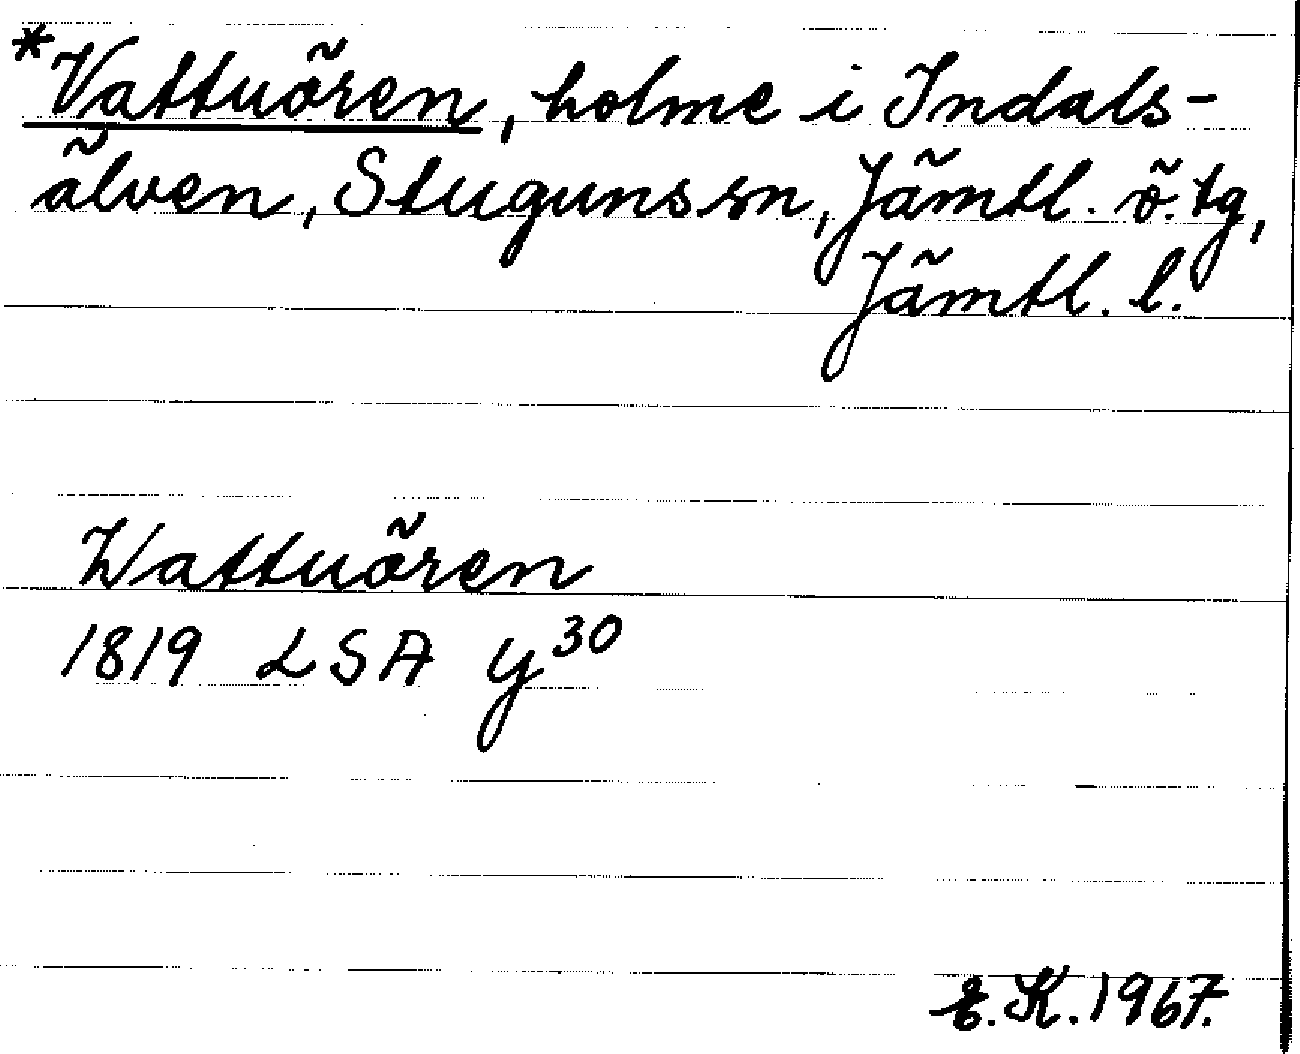 *Vattuören, holme i Indals-
älven, Stuguns sn, Jämtl. ö. tg,
Jämtl. l.
Wattuören
1819 LSA Y30
E. K. 1967.